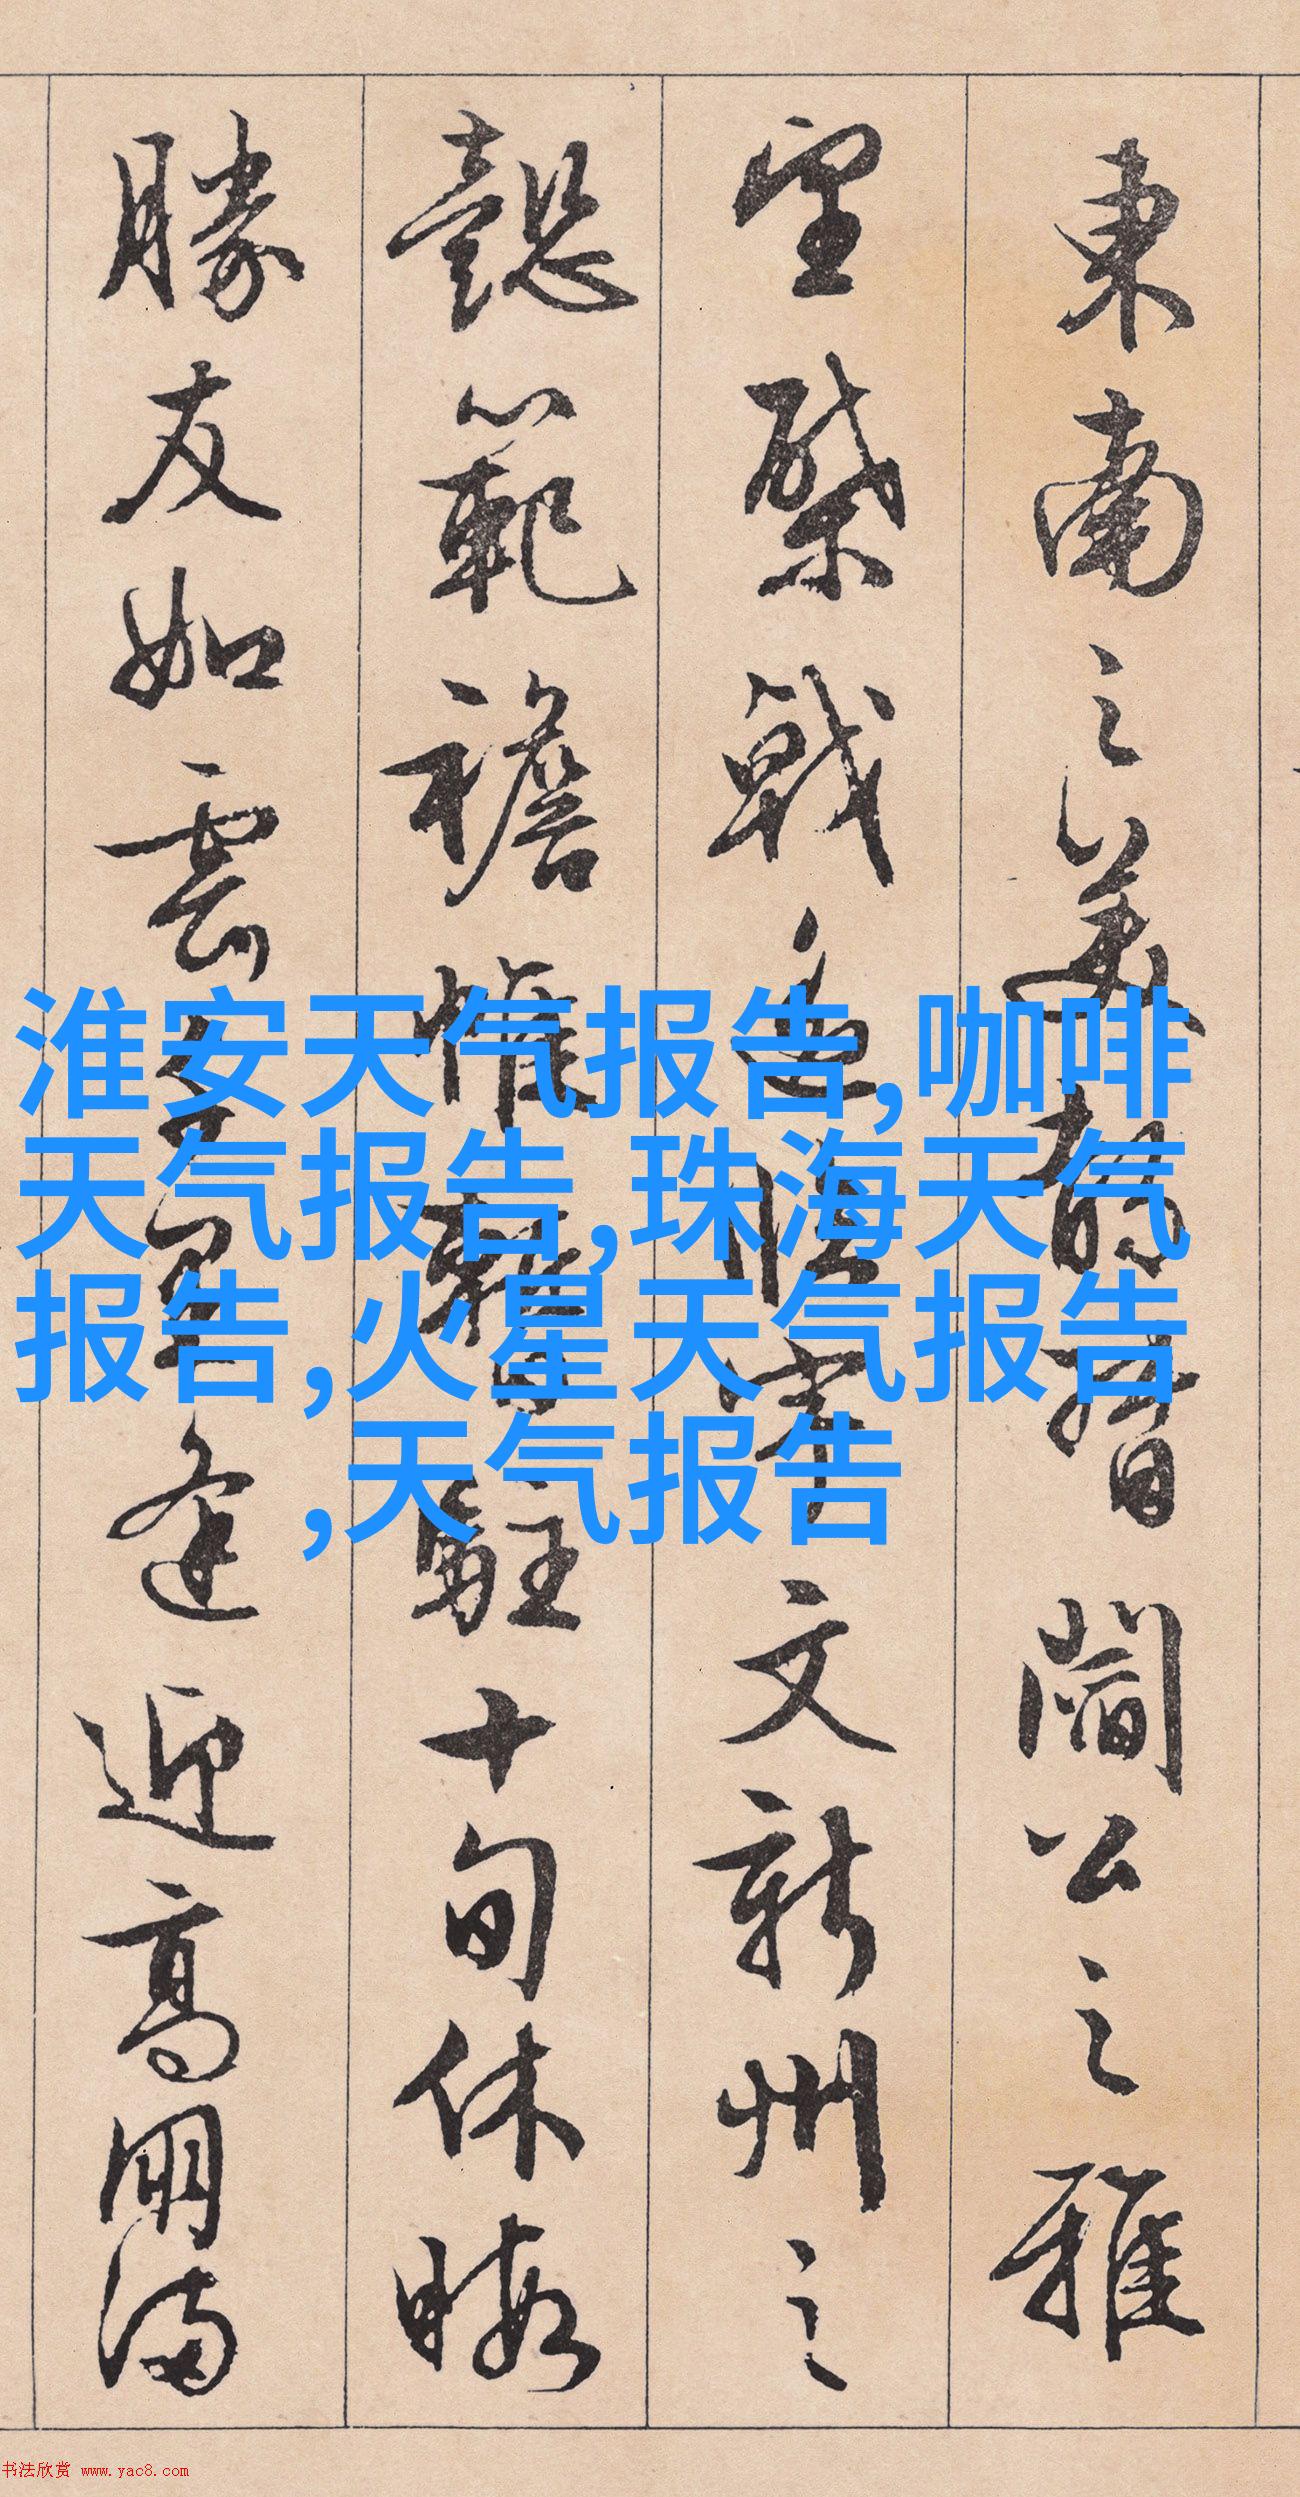 東南之美都督閻公之雅
望棨戟遥臨宇文新州之
懿範襜帷暫駐十旬休暇
勝友如雲千里逢迎高朋滿
淮安天气报告,咖啡
天气报告,珠海天气
报告,火星天气报告
,天气报告
书法欣赏 www.yac8.com